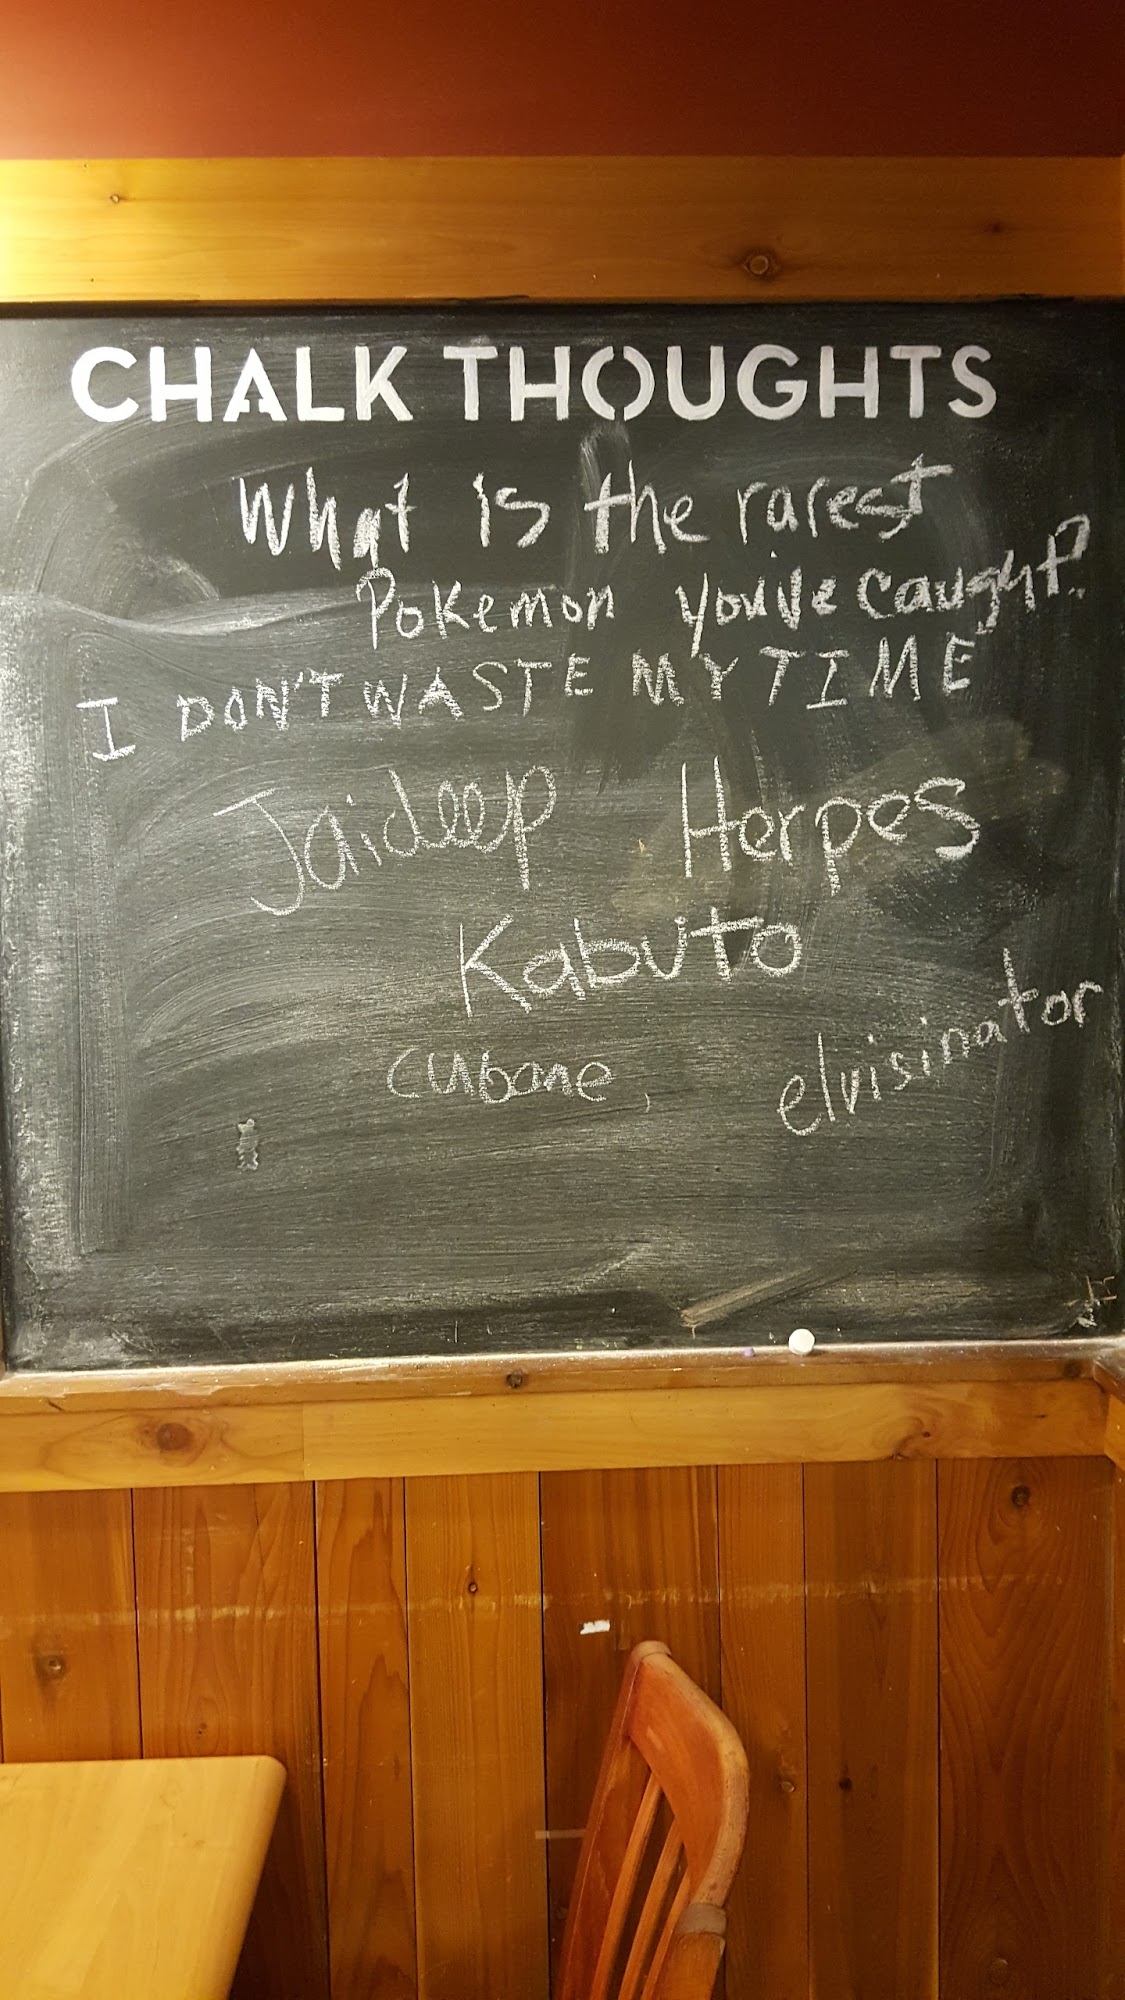 CHALK THOUGHTS
What is the rarest
Pokemon you've caught?
I DON'T WASTE MY TIME
Jaideep Herpes
Kabuto
cubone, elvisinator